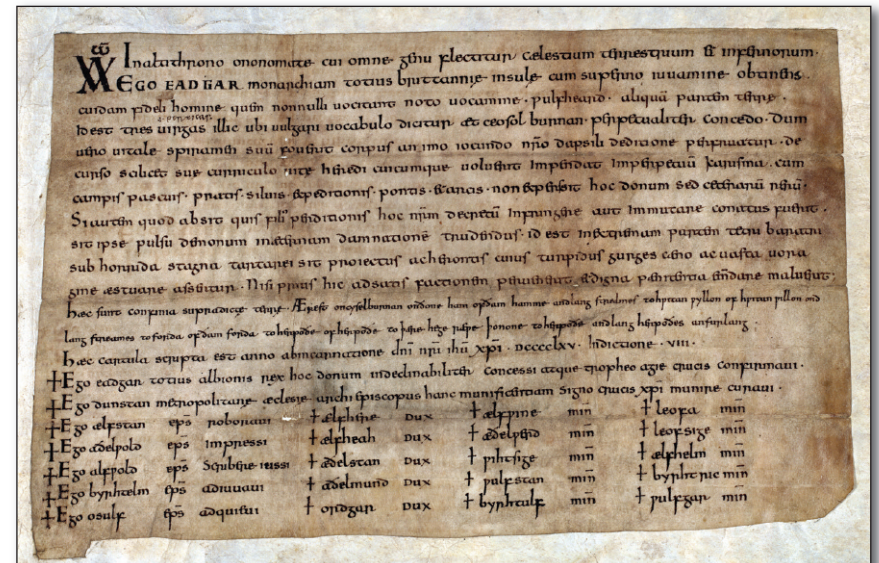 Inaltithrono onomate cui omne genu flectitur celestium terrestrium & infernorum.
EGO EADGAR monarchiam totius bruttannie insule cum superno iuuamine obtinens.
cuidam fideli homine quem nonnulli uocitant noto uocamine. ƿulfheard. aliquā partem terre.
Id est tres uirgas illic ubi uulgari uocabulo dicitur æt ceosol burnan. perpetualiter concedo. Dum
uero uitale spiramen suū corpus animo iocundo nr̄o dapsili deditione perfruatur. de
curso scilicet sue curriculo uite heredi cuicumque uoluerit impendat Imperpetuū karisma. cum
campis pascuis. pratis. siluis. expeditionis. pontis. &arcis. non expers sit hoc donum sed ceterarū rerū.
Si autem quod absit quis filiꝰ perditionis hoc nr̄m decretū Infringere aut Immutare conatus fuerit.
sit ipse pulsu demonum inæternam damnationē trudendus. id est Inextremam partem tetri baratri
sub horrida stagna tartarei sit proiectus acherontis cuius turpidus gurges ceno ac uasta uora
gine æstuare assertur. Nisi prius hic ad satis factionem peruenerit &digna penitentia emdare maluerit:
hæc sunt confinia supradicte terre. Ærest oncyselburnan ondone ham ofdam hamme andlang streames tohƿitan ƿyllon of hƿitan ƿillon ond
lang streames to forda of dam forda to herpode. of herpode to þere hege ræƿe. þonone to herpode andlang herpodes anfurlang.
hæc cartula scripta est anno abincarnatione dn̄i nr̄i ihū xp̄i. DCCCCLXV. Indictione. VIII.
+ Ego eadgar totius albionis rex hoc donum indeclinabiliter concessi atque tropheo agie crucis confirmaui.
+ Ego dunstan metropolitane æclesie archi episcopus hanc munificentiam signo crucis xp̄i munire curaui.
+ Ego ælfstan ep̄s roboraui + ælfhere dux + ælfƿine min̄ + leofa min̄
+ Ego aðelƿold ep̄s Impressi + ælfheah dux + æðelƿerd min̄ + leofsige min̄
+ Ego alfƿold ep̄s Scribere iussi + æðelstan dux + ƿihtsige min̄ + ælfhelm min̄
+ Ego byrhtelm ep̄s adiuuaui + æðelmund dux + ƿulfstan min̄ + byrhtric min̄
+ Ego osulf ep̄s adquieui + ordgar dux + byrhtulf min̄ + ƿulfgar min̄